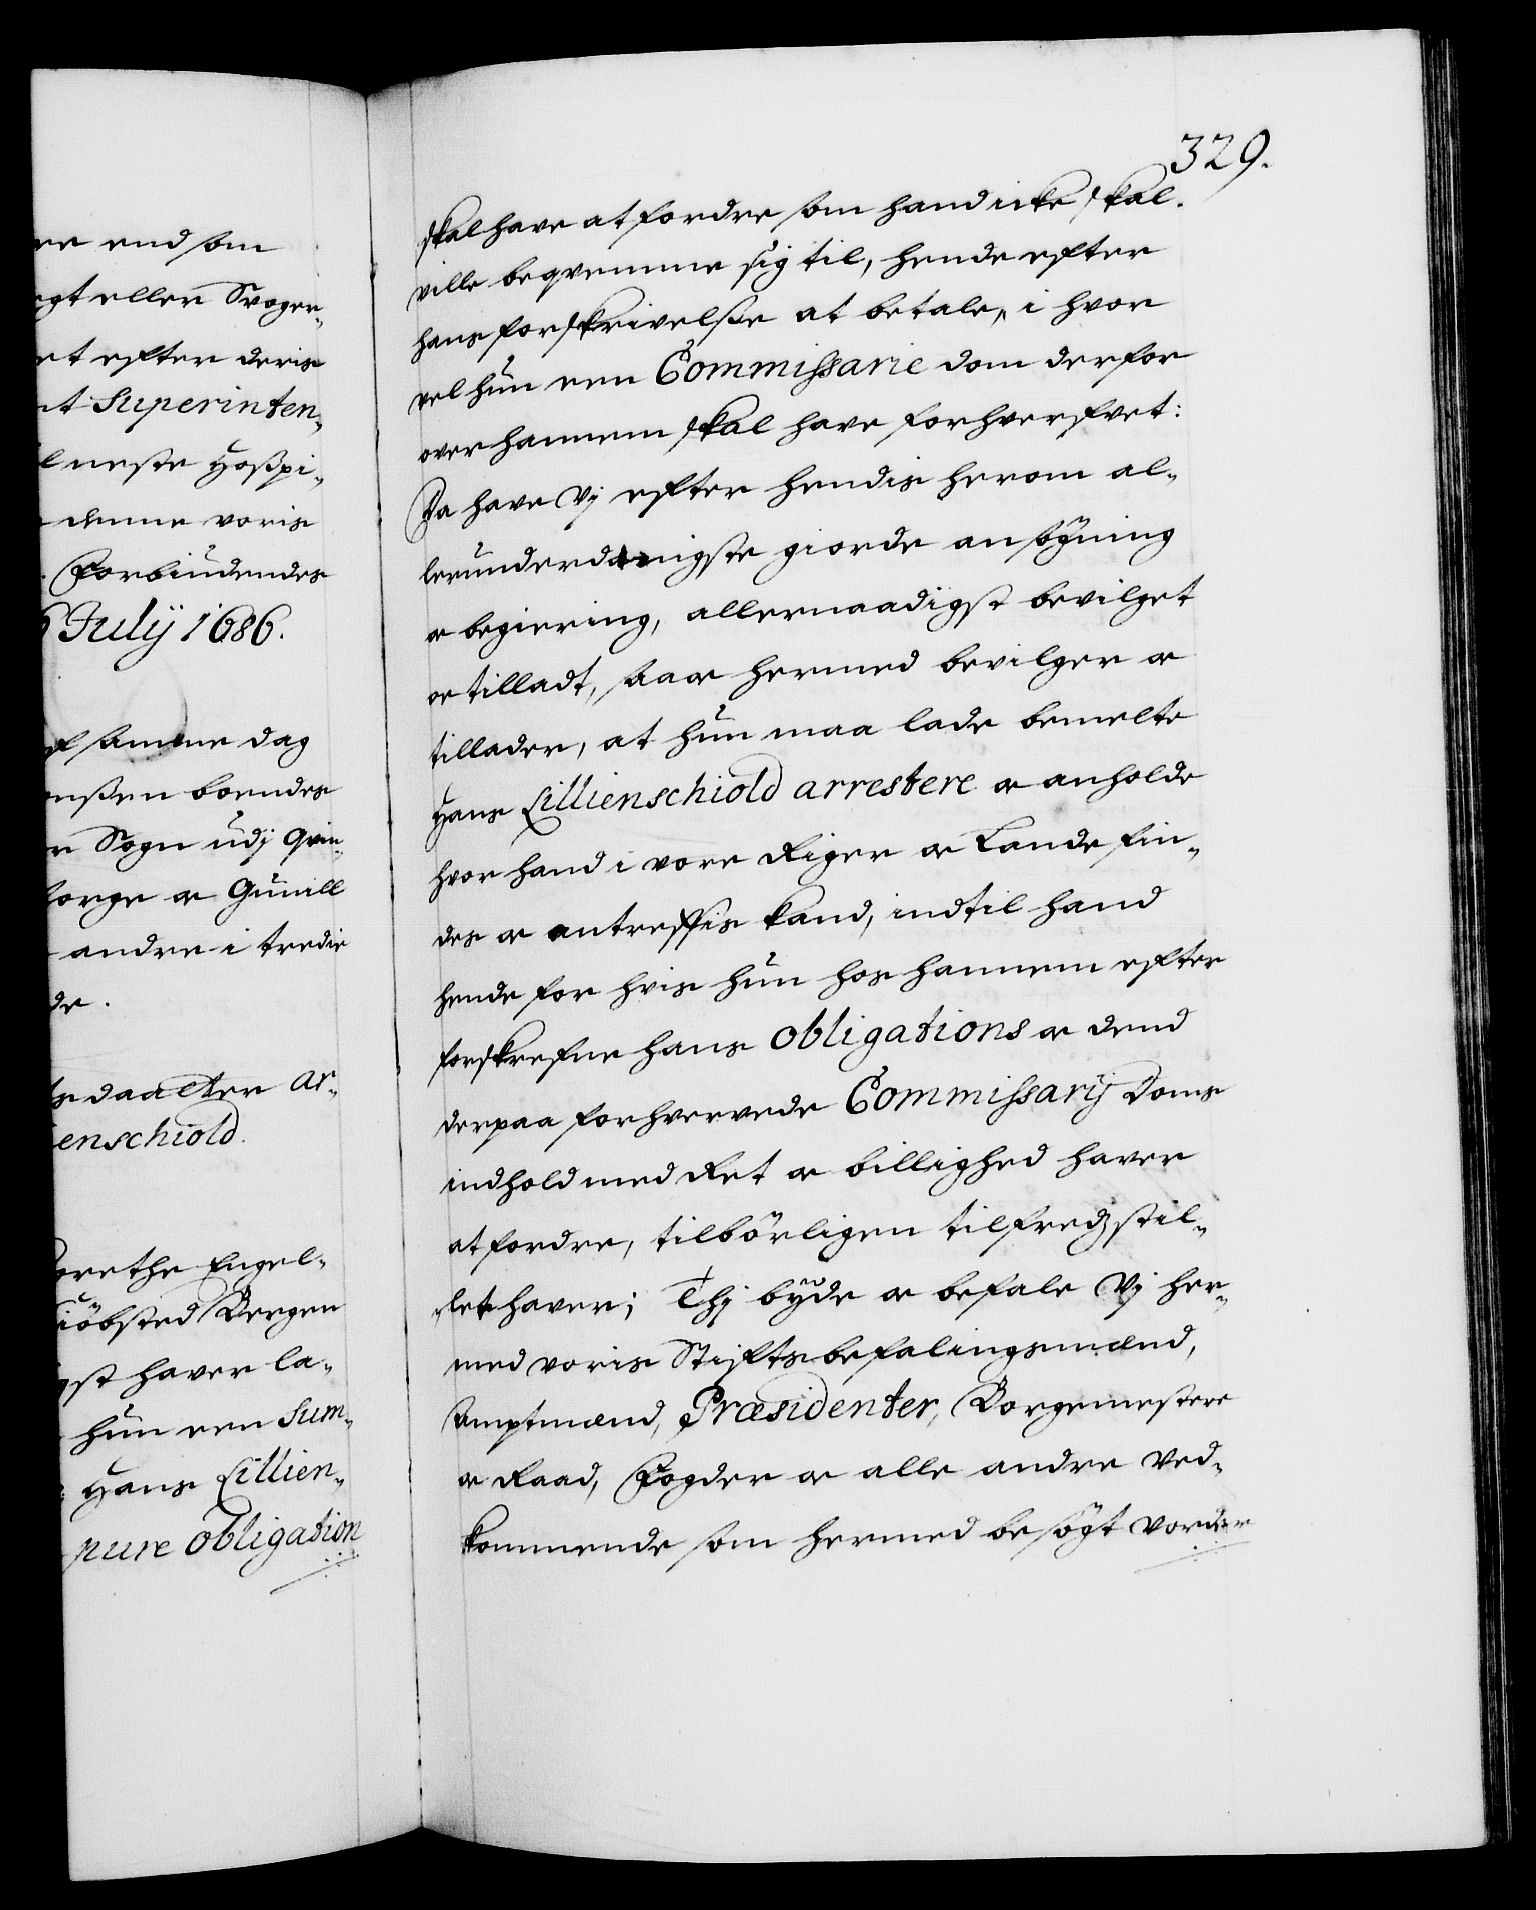 re end som
egt eller Svoger-
et efter deris
nt Superinten-
l neste Hospi-
denne voris
Forbiudendes
6 July 1686.
samme dag
onßen boendes
r Sogn udj Qvin-
orge oc Gunill
andre i tredie
de.
daaller Ar-
enschiold.
grethe Engel-
iöbsted Bergen
gst haver la-
hun een Sum-
Hans Lillien-
pure Obligation
329.
skal have at fordre som hand icke skal
ville beqvemme sig til, hende efter
hans forskrivelße at betale, i hvor
vel hun een Commissarie dom derfor
over hannem skal have forhverfvet:
Da have Vj efter hendis herom al-
lerunderdanigste giorde ansögning
oc begiering, allernaadigst bevilget
oc tilladt, saa oc hermed bevilger oc
tillader, at hun maa lade bemelte
Hans Lillienschiold arrestere oc anholde
hvor hand i vore Riger oc Lande fin-
des oc antreffis kand, indtil hand
hende for hvis hun hos hannem efter
forskrefne hans Obligations oc dend
derpaa forhvervede Commissarij Doms
indhold med Ret oc billighed haver
at fordre, tilbörligen tilfredzstil-
let haver; Thj byde oc befale Vj her-
med voris Stiftsbefalingsmænd,
Amptmænd, Præsidenter, Borgemestere
oc Raad, Fogder oc alle andre Ved-
kommende som hermed besögt vorder